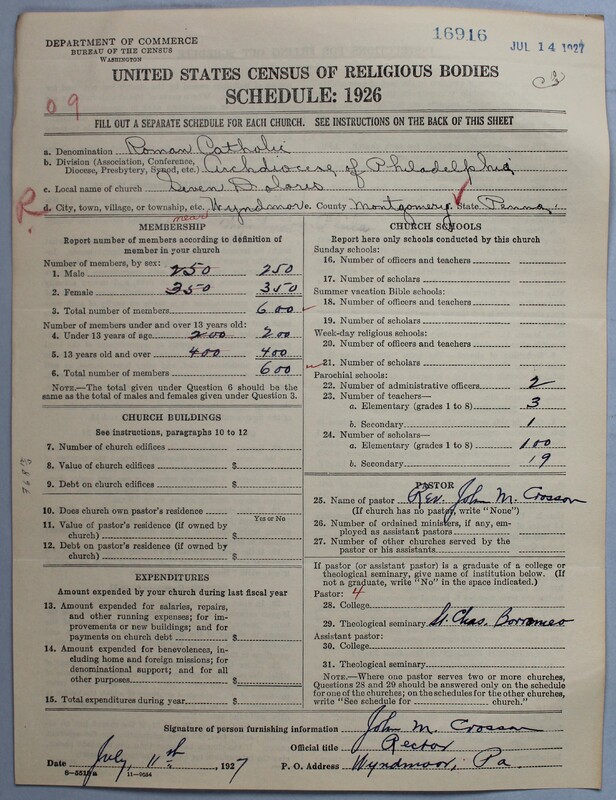 16916
JUL 14 1927
DEPARTMENT OF COMMERCE
BUREAU OF THE CENSUS
WASHINGTON
UNITED STATES CENSUS OF RELIGIOUS BODIES
SCHEDULE: 1926
09
FILL OUT A SEPARATE SCHEDULE FOR EACH CHURCH. SEE INSTRUCTIONS ON THE BACK OF THIS SHEET
a. Denomination Roman Catholic
b. Division (Association, Conference,
Diocese, Presbytery, Synod, etc.) Archdiocese of Philadelphia
c. Local name of church Seven Dolores
R. d. City, town, village, or township, etc. Wyndmoor e. County Montgomery State Penna.
near
MEMBERSHIP
Report number of members according to definition of
member in your church
Number of members, by sex:
1. Male 250 250
2. Female 350 350
3. Total number of members 600
Number of members under and over 13 years old:
4. Under 13 years of age 200 200
5. 13 years old and over 400 400
6. Total number of members 600
NOTE.—The total given under Question 6 should be
the same as the total of males and females given under Question 3.
CHURCH BUILDINGS
See instructions, paragraphs 10 to 12
7. Number of church edifices
8. Value of church edifices $
9. Debt on church edifices $
10. Does church own pastor's residence
Yes or No
11. Value of pastor's residence (if owned by
church) $
12. Debt on pastor's residence (if owned by
church) $
EXPENDITURES
Amount expended by your church during last fiscal year
13. Amount expended for salaries, repairs,
and other running expenses; for im-
provements or new buildings; and for
payments on church debt $
14. Amount expended for benevolences,
including home and foreign missions; for
denominational support; and for all
other purposes $
15. Total expenditures during year $
CHURCH SCHOOLS
Report here only schools conducted by this church
Sunday schools:
16. Number of officers and teachers
17. Number of scholars
Summer vacation Bible schools:
18. Number of officers and teachers
19. Number of scholars
Week-day religious schools:
20. Number of officers and teachers
21. Number of scholars
Parochial schools:
22. Number of administrative officers 2
23. Number of teachers—
a. Elementary (grades 1 to 8) 3
b. Secondary 1
24. Number of scholars—
a. Elementary (grades 1 to 8) 100
b. Secondary 19
PASTOR
25. Name of pastor Rev. John M. Crosson
(If church has no pastor, write "None")
26. Number of ordained ministers, if any, em-
ployed as assistant pastors
27. Number of other churches served by the
pastor or his assistants
If pastor (or assistant pastor) is a graduate of a college or
theological seminary, give name of institution below. (If
not a graduate, write "No" in the space indicated.)
Pastor: 4
28. College
29. Theological seminary St. Chas. Borromeo
Assistant pastor:
30. College
31. Theological seminary
NOTE.—Where one pastor serves two or more churches,
Questions 28 and 29 should be answered only on the schedule
for one of the churches; on the schedules for the other churches,
write "See schedule for church."
Signature of person furnishing information John M. Crosson
Official title Rector
Date July, 11st, 1927 P. O. Address Wyndmoor, Pa.
11—9594